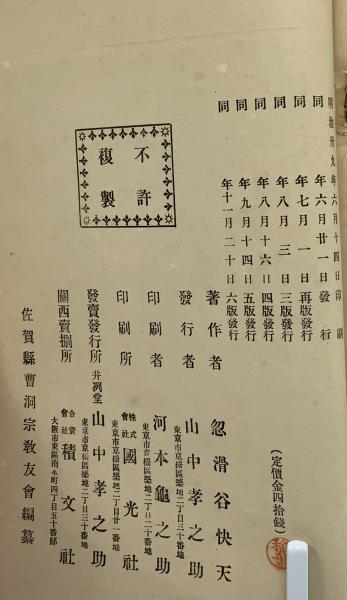 明治卅九年六月十四日印刷
同年六月廿一日發行
同年七月一日再版發行
同年八月三日三版發行
同年八月十六日四版發行
同年九月十四日五版發行
同年十一月二十日六版發行
不許複製
(定價金四拾錢)
著作者 忽滑谷快天
東京市京橋區築地二丁目三十番地
發行者 山中孝之助
東京市京橋區築地二丁目二十番地
印刷者 河本龜之助
東京市京橋區築地二丁目廿一番地
印刷所 株式會社 國光社
東京市京橋區築地二丁目三十番地
發賣發行所 井冽堂 山中孝之助
大阪市東區南本町四丁目五十番邸
關西賣捌所 合資會社 積文社
佐賀縣曹洞宗敎友會編纂